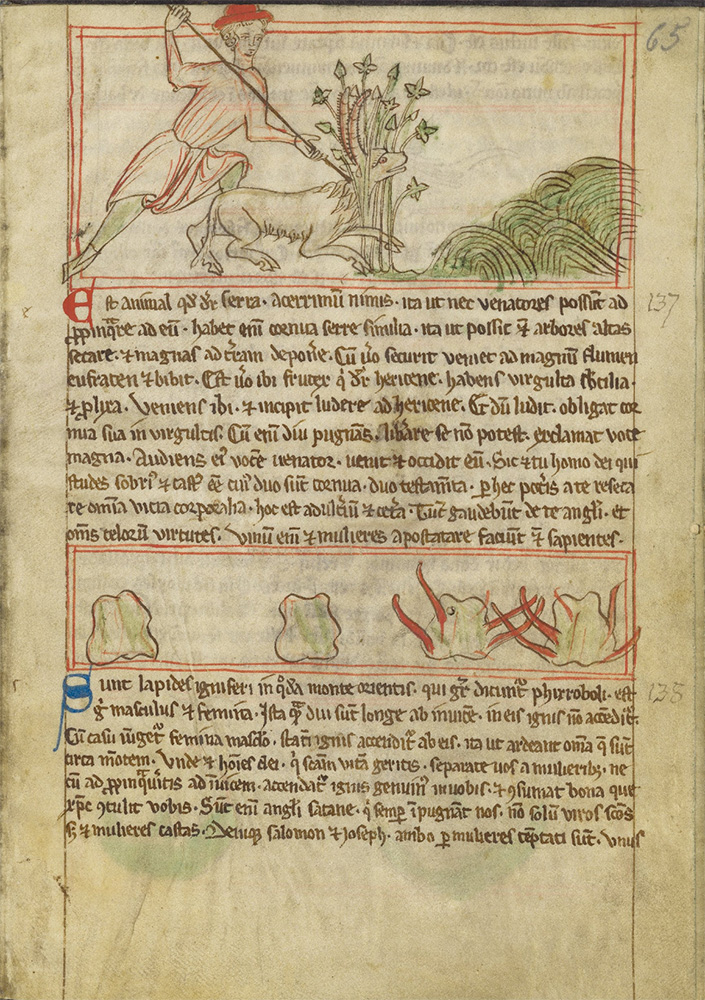 65
Est animal qd dr serra · acerrimū nimis · ita ut nec venatores possīt ad
ppīquare ad eū · habet enī cornua serre similia · ita ut possit ⁊ arbores altas
secare · ⁊ magnas ad trām deponere · Cū ṽo securit veniet ad magnū flumen
eufraten ⁊ bibit · Est ṽo ibi frutex q̇ dr hericene · habens virgulta
⁊ plixa · Veniens ibi · ⁊ incipit ludere ad hericene · Et dū ludit · obligat cor
nua sua in virgultis · Cū enī diu pugnans · libare se nō potest · exclamat voce
magna · Audiens eī vocē venator · venit ⁊ occidit eū · Sic ⁊ tu homo dei qui
studes sobri⁹ ⁊ cast⁹ ēe cui⁹ duo sunt cornua · duo testamīta · p hec potis a te reseca
re omīa vicia corporalia · hoc est adultiū ⁊ cetīa · Tūc gaudebūt de te angli · et
om̄s celorū virtutes · Vinū enī ⁊ mulieres apostatare faciunt ⁊ sapientes ·
137
Sunt lapides igniferi in qda monte orientis · qui gr̄ dicunt phirroboli · est
g masculus ⁊ femina · Ista qm diu sūt longe ab inuicē · in eis ignis nō accedit
Cū casu femina masclo · stati ignis accendit ab eis · ita ut ardeant omīa q sūt
circa mōtem · Vnde ⁊ hoīes dei · q scam vitā geritis · separate uos a mulierib; ne
cū ad ppinquitis ad īuicem · accendat ignis in uobis · ⁊ ꝯsumat bona que
xpc ꝯtulit vobis · Sūt enī angli satane · q semp īpugnāt nos · nō solū viros scōs
s; ⁊ mulieres castas · Deniq; salomon ⁊ ioseph · ambo p mulieres tēptati sūt · Vnus
138